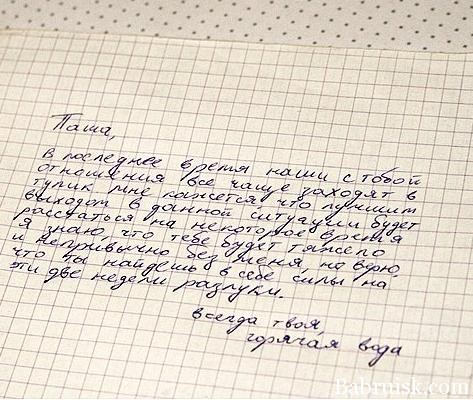 Паша,
в последнее время наши с тобой
отношения все чаще заходят в
тупик мне кажется, что лучшим
выходом в данной ситуации будет
расстаться на некоторое время
Я знаю, что тебе будет тяжело
и непривычно без меня, но верю,
что ты найдешь в себе силы на
эти две недели разлуки.
всегда твоя,
горячая вода
Babruisk.com